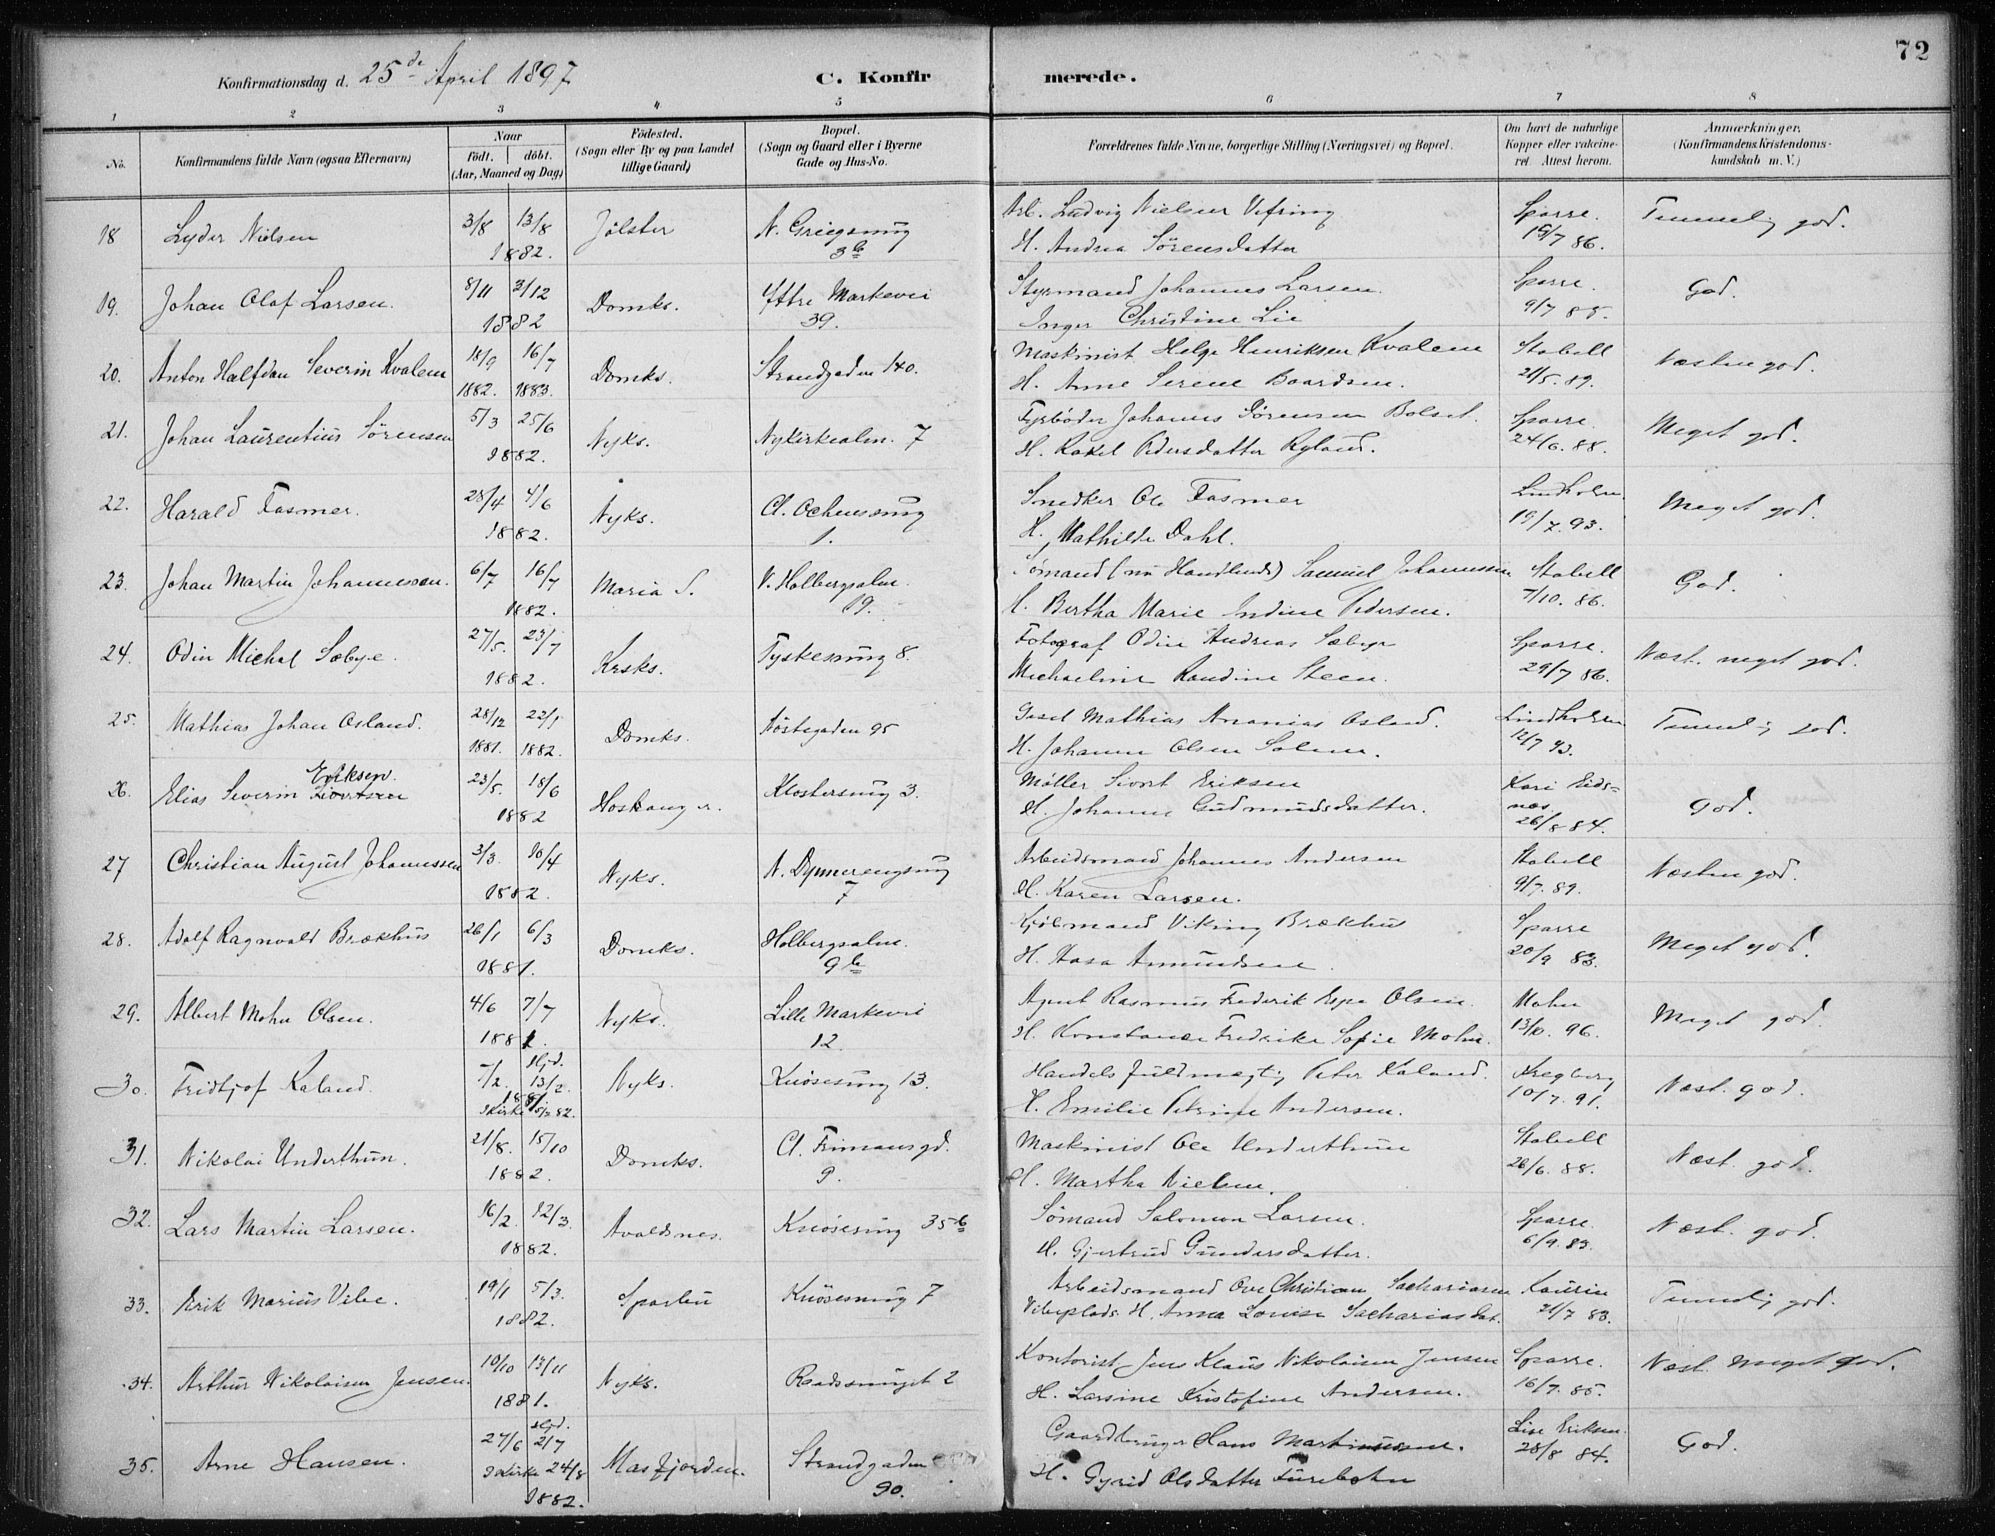 72
Konfirmationsdag d. 25de April 1897 C. Konfirmerede.
1 2 3 4 5 6 7 8
No. Konfirmandens fulde Navn (ogsaa Efternavn) Naar født. døbt. (Aar, Maaned og Dag) Fødested. (Sogn eller By og paa Landet tillige Gaard) Bopæl. (Sogn og Gaard eller i Byerne Gade og Hus-No. Forældrenes fulde Navne, borgerlige Stilling (Næringsvei) og Bopæl. Om havt de naturlige Kopper eller vakcineret. Attest herom. Anmærkninger. (Konfirmandens Kristendomskundskab m. V.)
18 Lyder Nielsen 3/8 13/8 Jølster N. Griegsmug Arb. Ludvig Nielsen Vefring Sparre. Temmelig god.
1882. 3b H. Andrea Sørensdatter 15/7 86.
19. Johan Olaf Larsen. 8/11 3/12 Domks. Yttre Markevei Styrmand Johannes Larsen. Sparre. God.
1882 39. Inger Christine Lie 9/7 85.
20. Anton Halfdan Severin Kvalem 18/9 16/7 Domks. Strandgaden 140. Maskinist Helge Henriksen Kvalem Stabell Næsten god.
1882. 1883. H. Anne Serene Baardsen. 21/5. 89.
21. Johan Laurentius Sørensen 5/3 25/6 Nyks. Nykirkealm. 7 Fyrbøder Johannes Sørensen Bolset. Sparre. Meget god.
1882. H. Rakel Pedersdatter Ryland. 24/6. 88.
22. Harald Fasmer. 23/4 4/6 Nyks. Cl. Ockensmug Snedker Ole Fasmer Lindholm Meget god.
1882. 1. H. Mathilde Dahl. 19/7. 93.
23. Johan Martin Johannessen. 6/7 16/7 Maria S. V. Holbergsalm. Sømand (nu Handlende) Samuel Johannessen Stabell God.
1882. 19. H. Bertha Marie Indine Pedersen. 7/10. 86.
24. Odin Michal Sæbye. 27/5. 23/7 Krsks. Tyskesmug 8. Fotograf Odin Andreas Sæbye Sparre. Næst. meget god.
1882. Michaeline Randine Steen. 29/7 86.
25. Mathias Johan Osland. 28/12 22/1 Domks. Nøstegaden 95 Mathias Ananias Osland. Lindholm Temmelig god.
1881. 1882. H. Johanne Olsen Solem. 12/7 93.
26. Elias Severin Sivertsen Eriksen. 23/5. 18/6 Hoskanger. Klostersmug 3. Møller Sivert Eriksen Kari Eidsnæs. God.
1882 H. Johanne Gudmundsdatter. 26/8 84.
27 Christian August Johannessen 3/3. 10/4 Nyks. N. Dynnerengsmug Arbeidsmand Johannes Andersen Stabell Næsten god.
1882. 7 H. Karen Larsen. 9/7. 89.
28. Adolf Ragnvald Brækhus 26/1 6/3 Domks. Holbergsalm. Kjølmand Viking Brækhus Sparre Meget god.
1881. 9b H. Aasa Amundsen 20/9 83.
29. Albert Mohn Olsen. 4/6 7/7 Nyks. Lille Markevei Agent Rasmus Frederik Espe Olsen. Mohn Meget god.
1881. 12. H. Konstance Fredrike Sofie Mohn. 13/10. 96.
30. Fridtjof Kaland. -/2. Hjd. 13/2. Nyks. Knøsesmug 13. Handelsfuldmægtig Peter Kaland. Kregberg Næst. god.
1881 i Kirke 5/2 82. H. Emilie Petrine Andersen. 10/7. 91.
31. Nikolai Underthun. 21/8. 15/10 Domks. Cl. Frimansgd. Maskinist Ole Underthun Stabell Næst. god.
1882. 9. H. Martha Nielsen. 26/6. 88.
32. Lars Martin Larsen. 16/2. 12/3. Avaldsnes. Knøsesmug 35b Sømand Salomon Larsen. Sparre. Næst. god.
1882. H. Gjertrud Gundersdatter. 6/9. 83.
33. Erik Marius Vibe. 19/1 5/3. Sparbu Knøsesmug 7 Arbeidsmand Ove Christian Sachariasen Laurin Temmelig god.
1882. Vibeplads. H. Anna Louise Sachariasdat. 21/7 83.
34. Arthur Nikolaisen Jensen. 10/10 13/11 Nyks. Raadsmuget 2 Kontorist Jens Klaus Nikolaisen Jensen Sparre. Næst. Meget god.
1881. H. Larsine Kristofine Andersen. 16/7. 85.
35. Arne Hansen. 27/6 Hjd. 2/7 Masfjorden. Strandgaden Gaardbruger Hans Martinussen. Lise Eriksen. God.
i Kirke 24/8 1882. 90. H. Gyrid Olsdatter Furebotn 28/8 84.